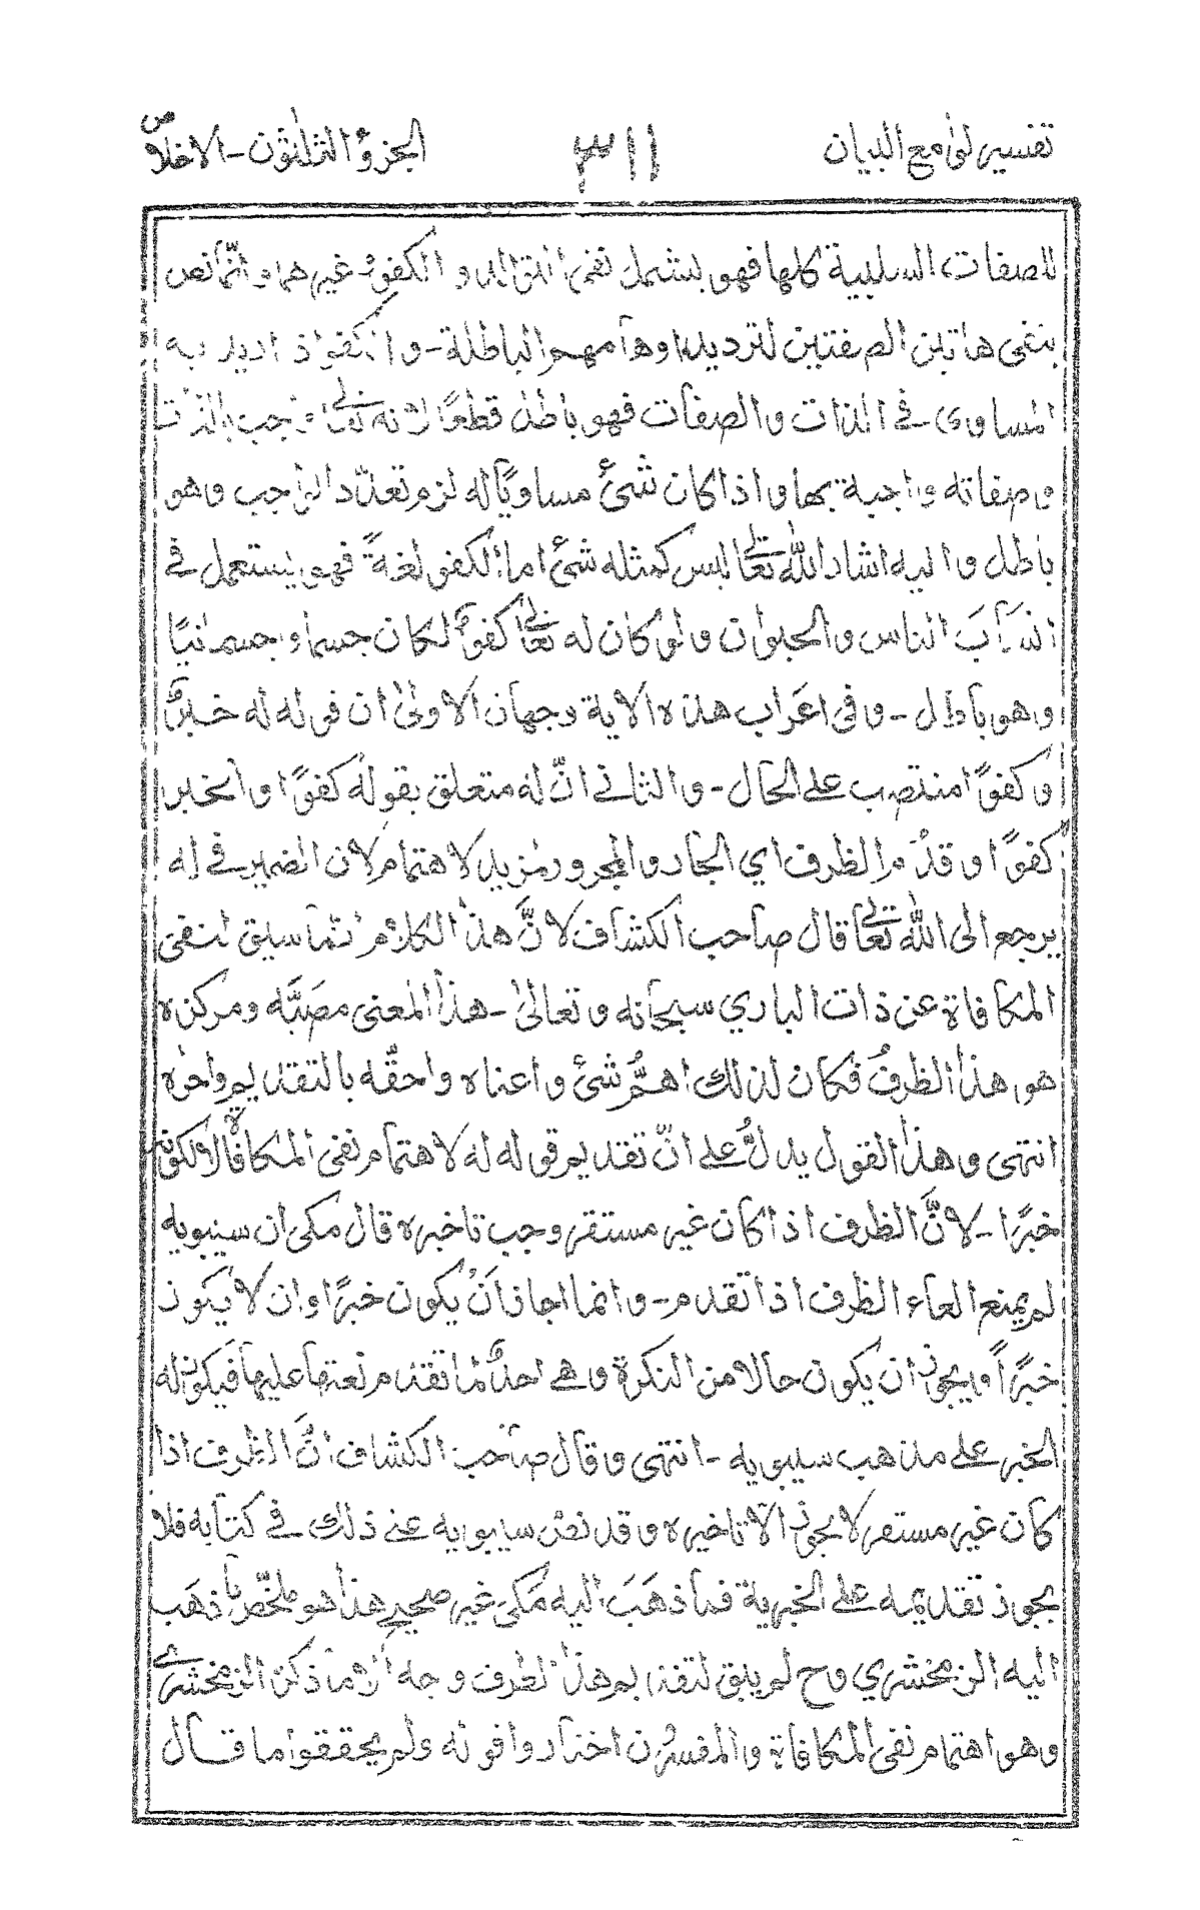 تفسير لوامع البيان ٣١١ الجزؤ الثلاثون - الاخلاص
للصفات السلبية كلها فهو يشمل نفى التوالد و الكفوء غيرهما و انّما نص
بنفى هاتين الصفتين لترديد اوهامهم الباطلة - و الكفو اذ اريد به
المساوى في الذات والصفات فهو باطل قطعًا لانه تعالى واجب بالذات
و صفاته واجبة بها و اذا كان شئ مساويًا له لزم تعدّد الواجب وهو
باطل و اليه اشار الله تعالى ليس كمثله شئ اما الكفو لغةً فهو يستعمل في
الناس والحيوان ولو كان له تعالى كفوًا لكان جسما و جسمانيًا
وهو باطل - و فى اعراب هذه الاية وجهان الاولى ان قوله له خبرًا
وكفوًا منتصب على الحال - و الثاني انّ له متعلق بقوله كفوًا والخبر
كفوًا و قدّم الظرف اي الجار والمجرور لمزيد لاهتمام لان الضمير في له
يرجع الى الله تعالى قال صاحب الكشاف لانَّ هذا الكلام انما سيق لنفى
المكافاة عن ذات الباري سبحانه و تعالى - هذا المعنى مصَبَّه ومركزه
هو هذا الظرف فكان لذلك اهمُّ شئ و اعناه واحقّه بالتقديم واحراه
انتهى وهذا القول يدلُّ على انّ تقديم قوله له لاهتمام نفى المكافاة لا لكونه
خبرًا - لانَّ الظرف اذا كان غير مستقر وجب تاخيره قال مكى ان سيبويه
لم يمنع الغاء الظرف اذا تقدم - و انما اجاز انْ يكون خبرًا و ان لا يكون
خبرًا ويجوز ان يكون حالا من النكرة و هي احدٌ لما تقدم نعتها عليها فيكون له
الخبر على مذهب سيبويه - انتهى و قال صاحب الكشاف انَّ الظرف اذا
كان غير مستقر لا يجوز الا تاخيره و قد نص سيبويه على ذلك في كتابه فلا
يجوز تقديمه على الخبرية فما ذهَبَ اليه مَكى غير صحيح هذا هو ملخّص ما ذهَب
اليه الزمخشري وح لم يبق لتقديم هذا الظرف وجه الا ما ذكره الزمخشرى
وهو اهتمام نفى المكافاة والمفسّرون اختاروا قوله ولم يحققوا ما قال